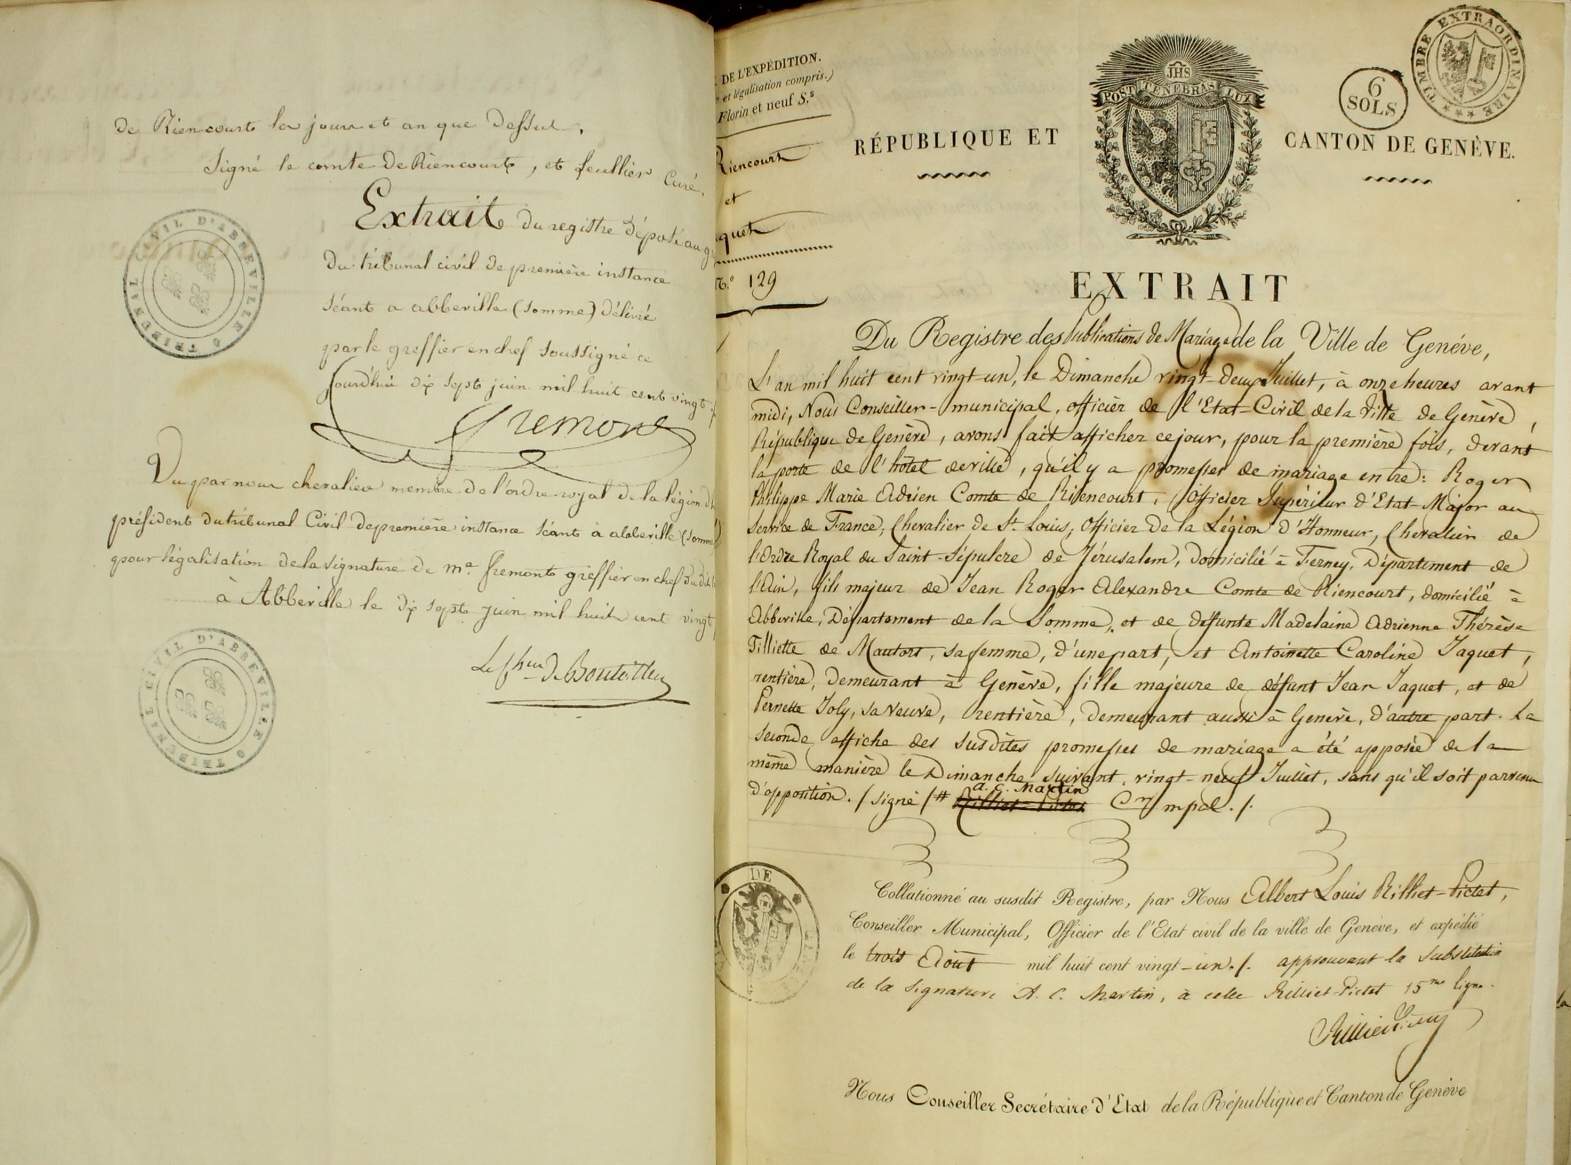 de Riencourt les jour et an que dessus.
signé le comte de Riencourt, et feuillier curé.
Extrait du registre déposé au
du tribunal civil de première instance
séant a abbeville (somme) délivré
par le greffier en chef soussigné ce
jourd'hui dix sept juin mil huit cent vingt
Fremont
TRIBUNAL CIVIL D'ABBEVILLE
Vu par nous chevalier membre de l'ordre royal de la légion
président du tribunal Civil de première instance séant à abbeville (somme)
pour légalisation de la signature de Me fremont greffier en chef
à Abbeville le dix sept juin mil huit cent vingt
TRIBUNAL CIVIL D'ABBEVILLE
DE L'EXPÉDITION.
et légalisation compris.)
Florin et neuf S.s
Riencourt
et
aquet
N.o 129
RÉPUBLIQUE ET
JHS
POST TENEBRAS LUX
CANTON DE GENÈVE.
6
SOLS
TIMBRE EXTRAORDINAIRE
EXTRAIT
Du Registre des Publications de Mariage de la Ville de Genève,
L'an mil huit cent vingt un, le Dimanche vingt-deux Juillet, à onze heures avant
midi, Nous Conseiller-municipal, officier de l'Etat-Civil de la Ville de Genève,
République de Genève, avons fait afficher ce jour, pour la première fois, devant
la porte de l'hôtel de ville, qu'il y a promesses de mariage entre: Roger
Philippe Marie Adrien Comte de Riencourt, Officier Supérieur d'Etat Major au
service de France, Chevalier de St. Louis, Officier de la Légion d'Honneur, Chevalier de
l'Ordre Royal du Saint-Sépulcre de Jérusalem, domicilié à Ferney, Département de
l'Ain, fils majeur de Jean Roger Alexandre Comte de Riencourt, domicilié à
Abbeville, Département de la Somme, et de défunte Madelaine Adrienne Thérèse
Tilliette de Mautort, sa femme, d'une part, et Antoinette Caroline Jaquet,
rentière, demeurant à Genève, fille majeure de défunt Jean Jaquet, et de
Pernette Joly, sa veuve, rentière, demeurant aussi à Genève, d'autre part. La
seconde affiche des susdites promesses de mariage a été apposée de la
même manière le Dimanche suivant, vingt-neuf Juillet, sans qu'il soit parvenu
d'opposition. / signé / # A. C. Martin Rilliet-Pictet Cer mpal. /.
DE
Collationné au susdit Registre, par Nous Albert Louis Rilliet-Pictet,
Conseiller Municipal, Officier de l'Etat civil de la ville de Genève, et expédié
le trois Août mil huit cent vingt-un. /. approuvant la substitution
de la signature A. C. Martin, à celle Rilliet-Pictet 15me ligne.
Rilliet Pictet
Nous Conseiller Secrétaire d'Etat de la République et Canton de Genève